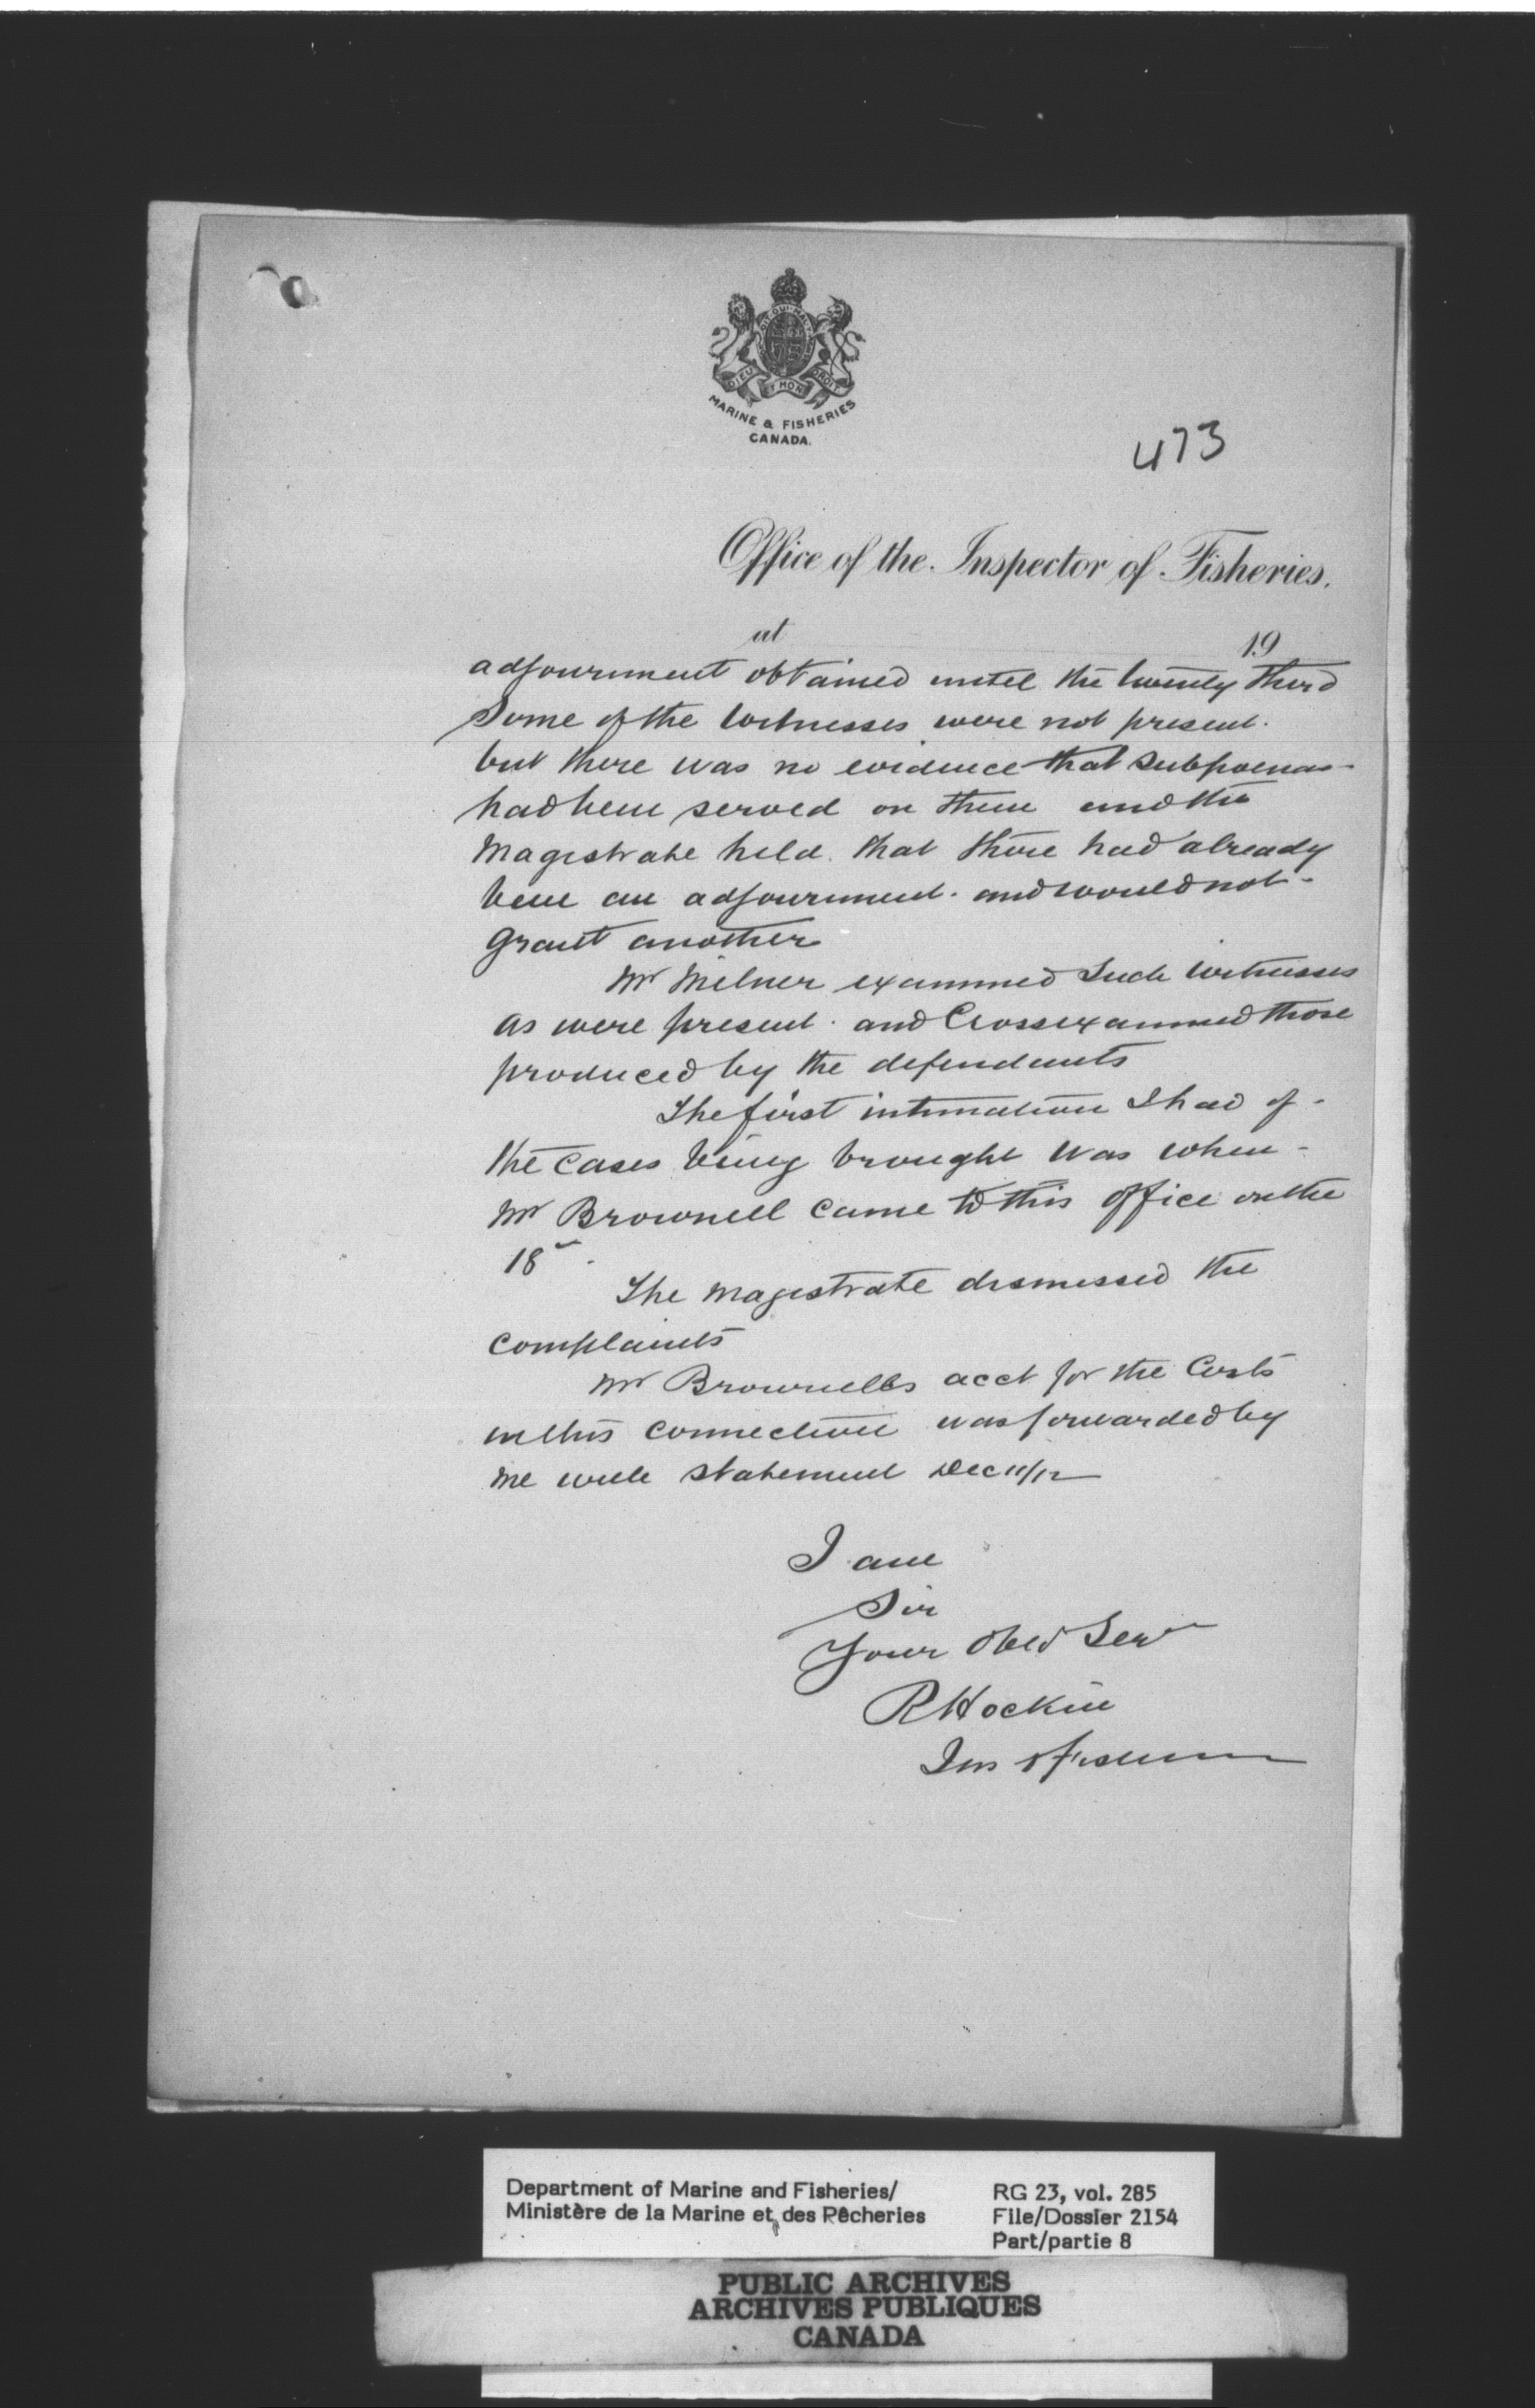 DIEU ET MON DROIT
MARINE & FISHERIES
CANADA.
473
Office of the Inspector of Fisheries.
at 19
adjournment obtained until the twenty third
Some of the witnesses were not present.
but there was no evidence that subpoenas
had been served on them and the
Magistrate held that there had already
been an adjournment. and would not
grant another
Mr Milner examined such witnesses
as were present. and Crossexamined those
produced by the defendants
The first intimation I had of
the cases being brought was when
Mr Brownell came to this office on the
18
The Magistrate dismissed the
complaints
Mr Brownells acct for the Costs
in this connection was forwarded by
me with statement Dec 11/12
I am
Sir
Your Obed Serv
R Hockin
Ins of Fisheries
Department of Marine and Fisheries/ RG 23, vol. 285
Ministère de la Marine et des Pêcheries File/Dossier 2154
Part/partie 8
PUBLIC ARCHIVES
ARCHIVES PUBLIQUES
CANADA